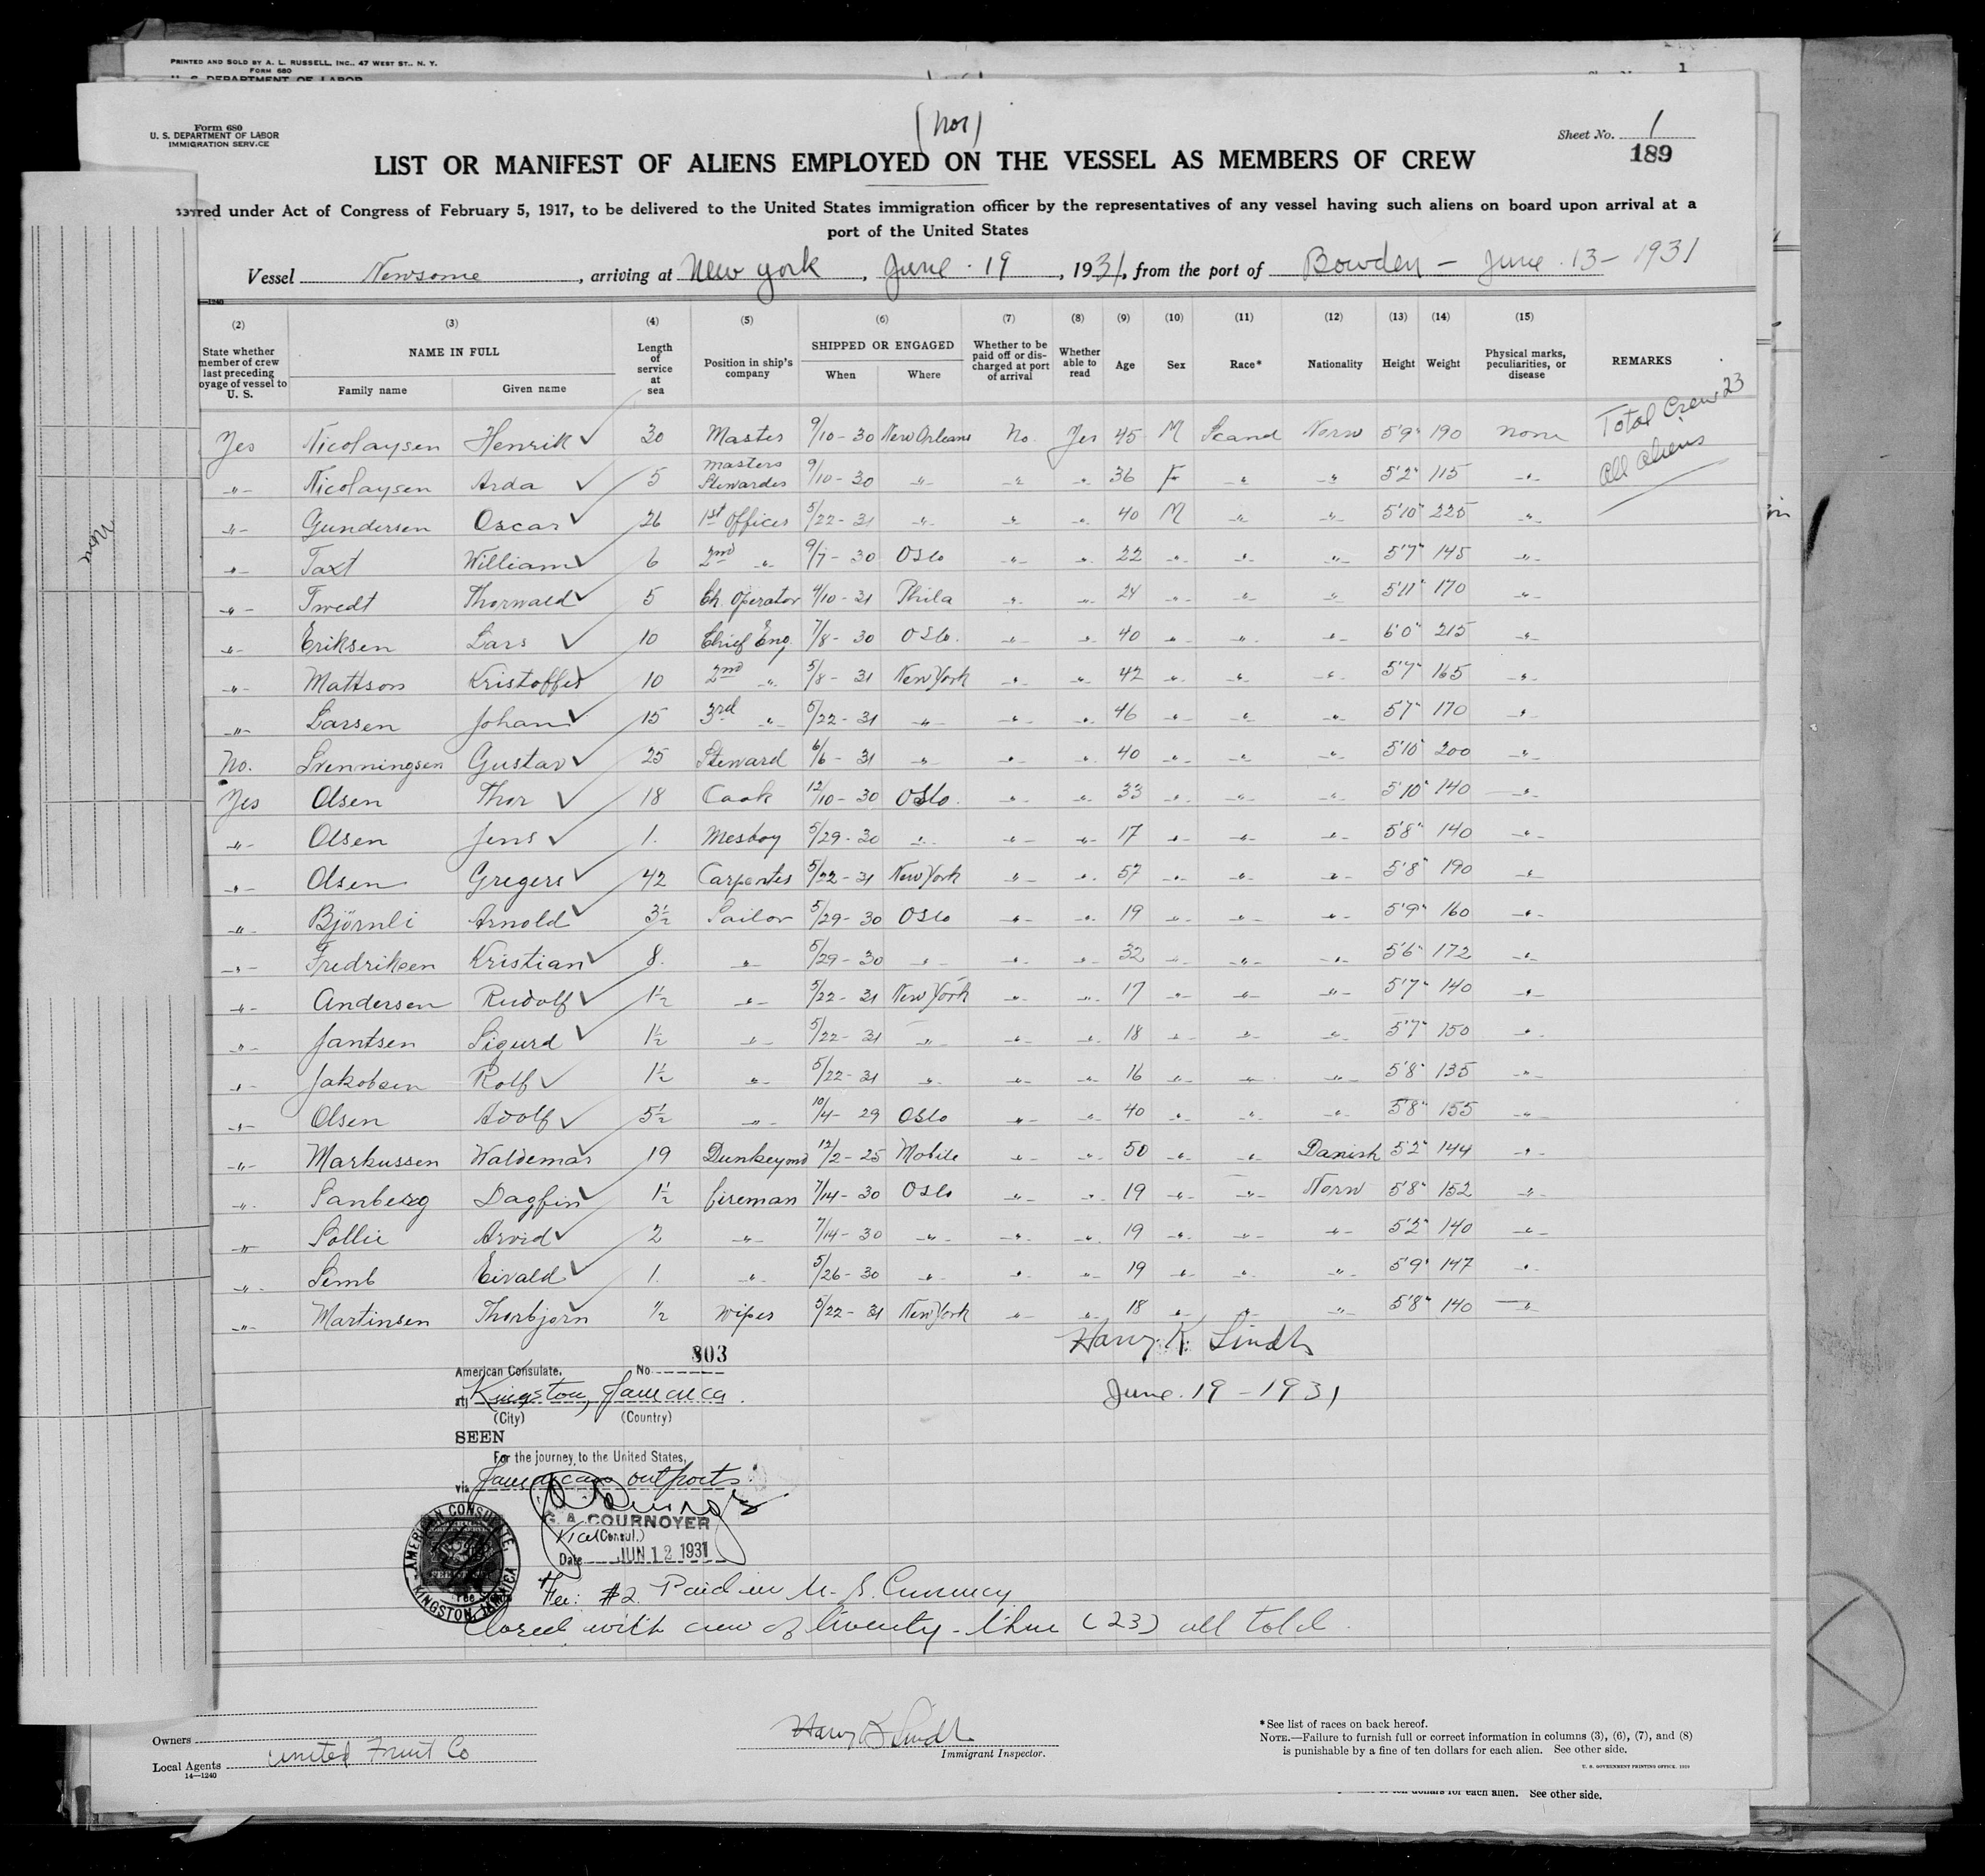 PRINTED AND SOLD BY A. L. RUSSELL, INC., 47 WEST ST., N. Y.
FORM 680
U. S. DEPARTMENT OF LABOR
1
Form 680
U. S. DEPARTMENT OF LABOR
IMMIGRATION SERVICE
(Nor)
Sheet No. 1
189
LIST OR MANIFEST OF ALIENS EMPLOYED ON THE VESSEL AS MEMBERS OF CREW
red under Act of Congress of February 5, 1917, to be delivered to the United States immigration officer by the representatives of any vessel having such aliens on board upon arrival at a
port of the United States
Vessel Newsome, arriving at New York, June 19, 1931, from the port of Bowden - June 13 - 1931
(2) (3) (4) (5) (6) (7) (8) (9) (10) (11) (12) (13) (14) (15)
State whether member of crew last preceding oyage of vessel to U. S. | NAME IN FULL Family name Given name | Length of service at sea | Position in ship's company | SHIPPED OR ENGAGED When Where | Whether to be paid off or discharged at port of arrival | Whether able to read | Age | Sex | Race* | Nationality | Height | Weight | Physical marks, peculiarities, or disease | REMARKS
Total Crew 23
all aliens
Yes Nicolaysen Henrik ✓ 30 Master 9/10-30 New Orleans No. Yes 45 M Scand Norw 5'9" 190 none
-"- Nicolaysen Arda ✓ 5 Masters Stewardes 9/10-30 -"- -"- -"- 36 F -"- -"- 5'2" 115 -"-
-"- Gundersen Oscar ✓ 26 1st Officer 5/22-31 -"- -"- -"- 40 M -"- -"- 5'10" 225 -"-
-"- Taxt William ✓ 6 2nd -"- 9/7-30 Oslo -"- -"- 22 -"- -"- -"- 5'7" 145 -"-
-"- Twedt Thorwald ✓ 5 Ch. Operator 4/10-31 Phila -"- -"- 24 -"- -"- -"- 5'11" 170 -"-
-"- Eriksen Lars ✓ 10 Chief Eng 7/8-30 Oslo. -"- -"- 40 -"- -"- -"- 6'0" 215 -"-
-"- Mattson Kristoffer ✓ 10 2nd -"- 5/8-31 New York -"- -"- 42 -"- -"- -"- 5'7" 165 -"-
-"- Larsen Johan ✓ 15 3rd -"- 5/22-31 -"- -"- -"- 46 -"- -"- -"- 5'7" 170 -"-
No. Svenningsen Gustav ✓ 25 Steward 6/6-31 -"- -"- -"- 40 -"- -"- -"- 5'10" 200 -"-
Yes Olsen Thor ✓ 18 Cook 12/10-30 Oslo. -"- -"- 33 -"- -"- -"- 5'10" 140 -"-
-"- Olsen Jens ✓ 1. Mesboy 5/29-30 -"- -"- -"- 17 -"- -"- -"- 5'8" 140 -"-
-"- Olsen Gregers ✓ 42 Carpenter 5/22-31 New York -"- -"- 57 -"- -"- -"- 5'8" 190 -"-
-"- Björnli Arnold ✓ 3½ Sailor 5/29-30 Oslo -"- -"- 19 -"- -"- -"- 5'9" 160 -"-
-"- Fredriksen Kristian ✓ 8. -"- 5/29-30 -"- -"- -"- 32 -"- -"- -"- 5'6" 172 -"-
-"- Andersen Rudolf ✓ 1½ -"- 5/22-31 New York -"- -"- 17 -"- -"- -"- 5'7" 140 -"-
-"- Jantsen Sigurd ✓ 1½ -"- 5/22-31 -"- -"- -"- 18 -"- -"- -"- 5'7" 150 -"-
-"- Jakobsen Rolf ✓ 1½ -"- 5/22-31 -"- -"- -"- 16 -"- -"- -"- 5'8" 135 -"-
-"- Olsen Adolf ✓ 5½ -"- 10/4-29 Oslo -"- -"- 40 -"- -"- -"- 5'8" 155 -"-
-"- Markussen Waldemar ✓ 19 Dunkeymd 12/2-25 Mobile -"- -"- 50 -"- -"- Danish 5'2" 144 -"-
-"- Sanberg Dagfin ✓ 1½ fireman 7/14-30 Oslo -"- -"- 19 -"- -"- Norw 5'8" 152 -"-
-"- Sollie Arvid ✓ 2 -"- 7/14-30 -"- -"- -"- 19 -"- -"- -"- 5'2" 140 -"-
-"- Semb Eivald ✓ 1. -"- 5/26-30 -"- -"- -"- 19 -"- -"- -"- 5'9" 147 -"-
-"- Martinsen Thorbjorn ✓ ½ Wiper 5/22-31 New York -"- -"- 18 -"- -"- -"- 5'8" 140 -"-
Harry K. Lindh
June 19 - 1931
American Consulate, No 803
at Kingston, Jamaica.
(City) (Country)
SEEN
For the journey to the United States,
via Jamaican outports
G. A. COURNOYER
Vice (Consul.)
Date JUN 12 1931
AMERICAN CONSULATE, KINGSTON, JAMAICA
Fee: $2. Paid in U. S. Currency
Closed with crew of twenty-three (23) all told.
Owners
Local Agents United Fruit Co
14—1240
Harry K Lindh
Immigrant Inspector.
*See list of races on back hereof.
NOTE.—Failure to furnish full or correct information in columns (3), (6), (7), and (8)
is punishable by a fine of ten dollars for each alien. See other side.
U. S. GOVERNMENT PRINTING OFFICE
for each alien. See other side.